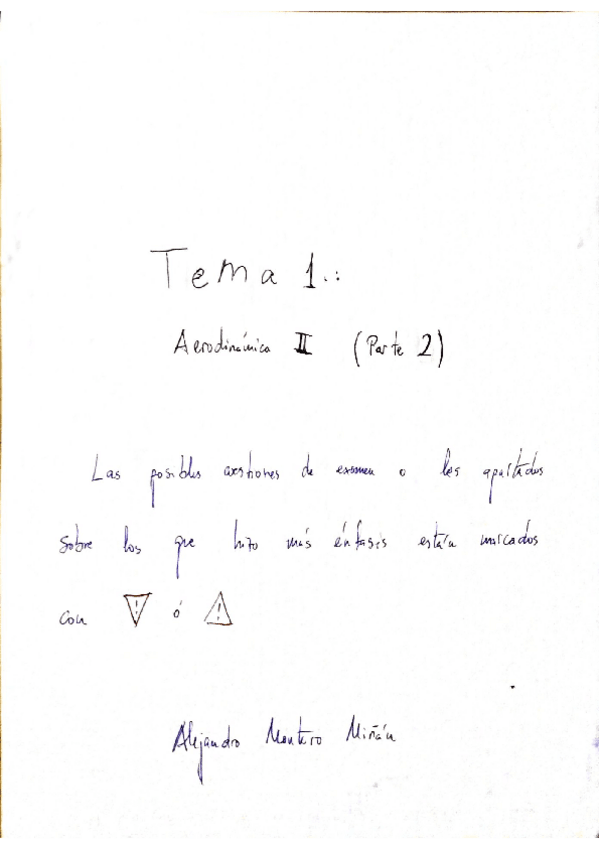 Tema 1.:
Aerodinámica II (Parte 2)
Las posibles cuestiones de examen o los apartados
sobre los que hizo más énfasis están marcados
con ó
Alejandro Montero Miñán